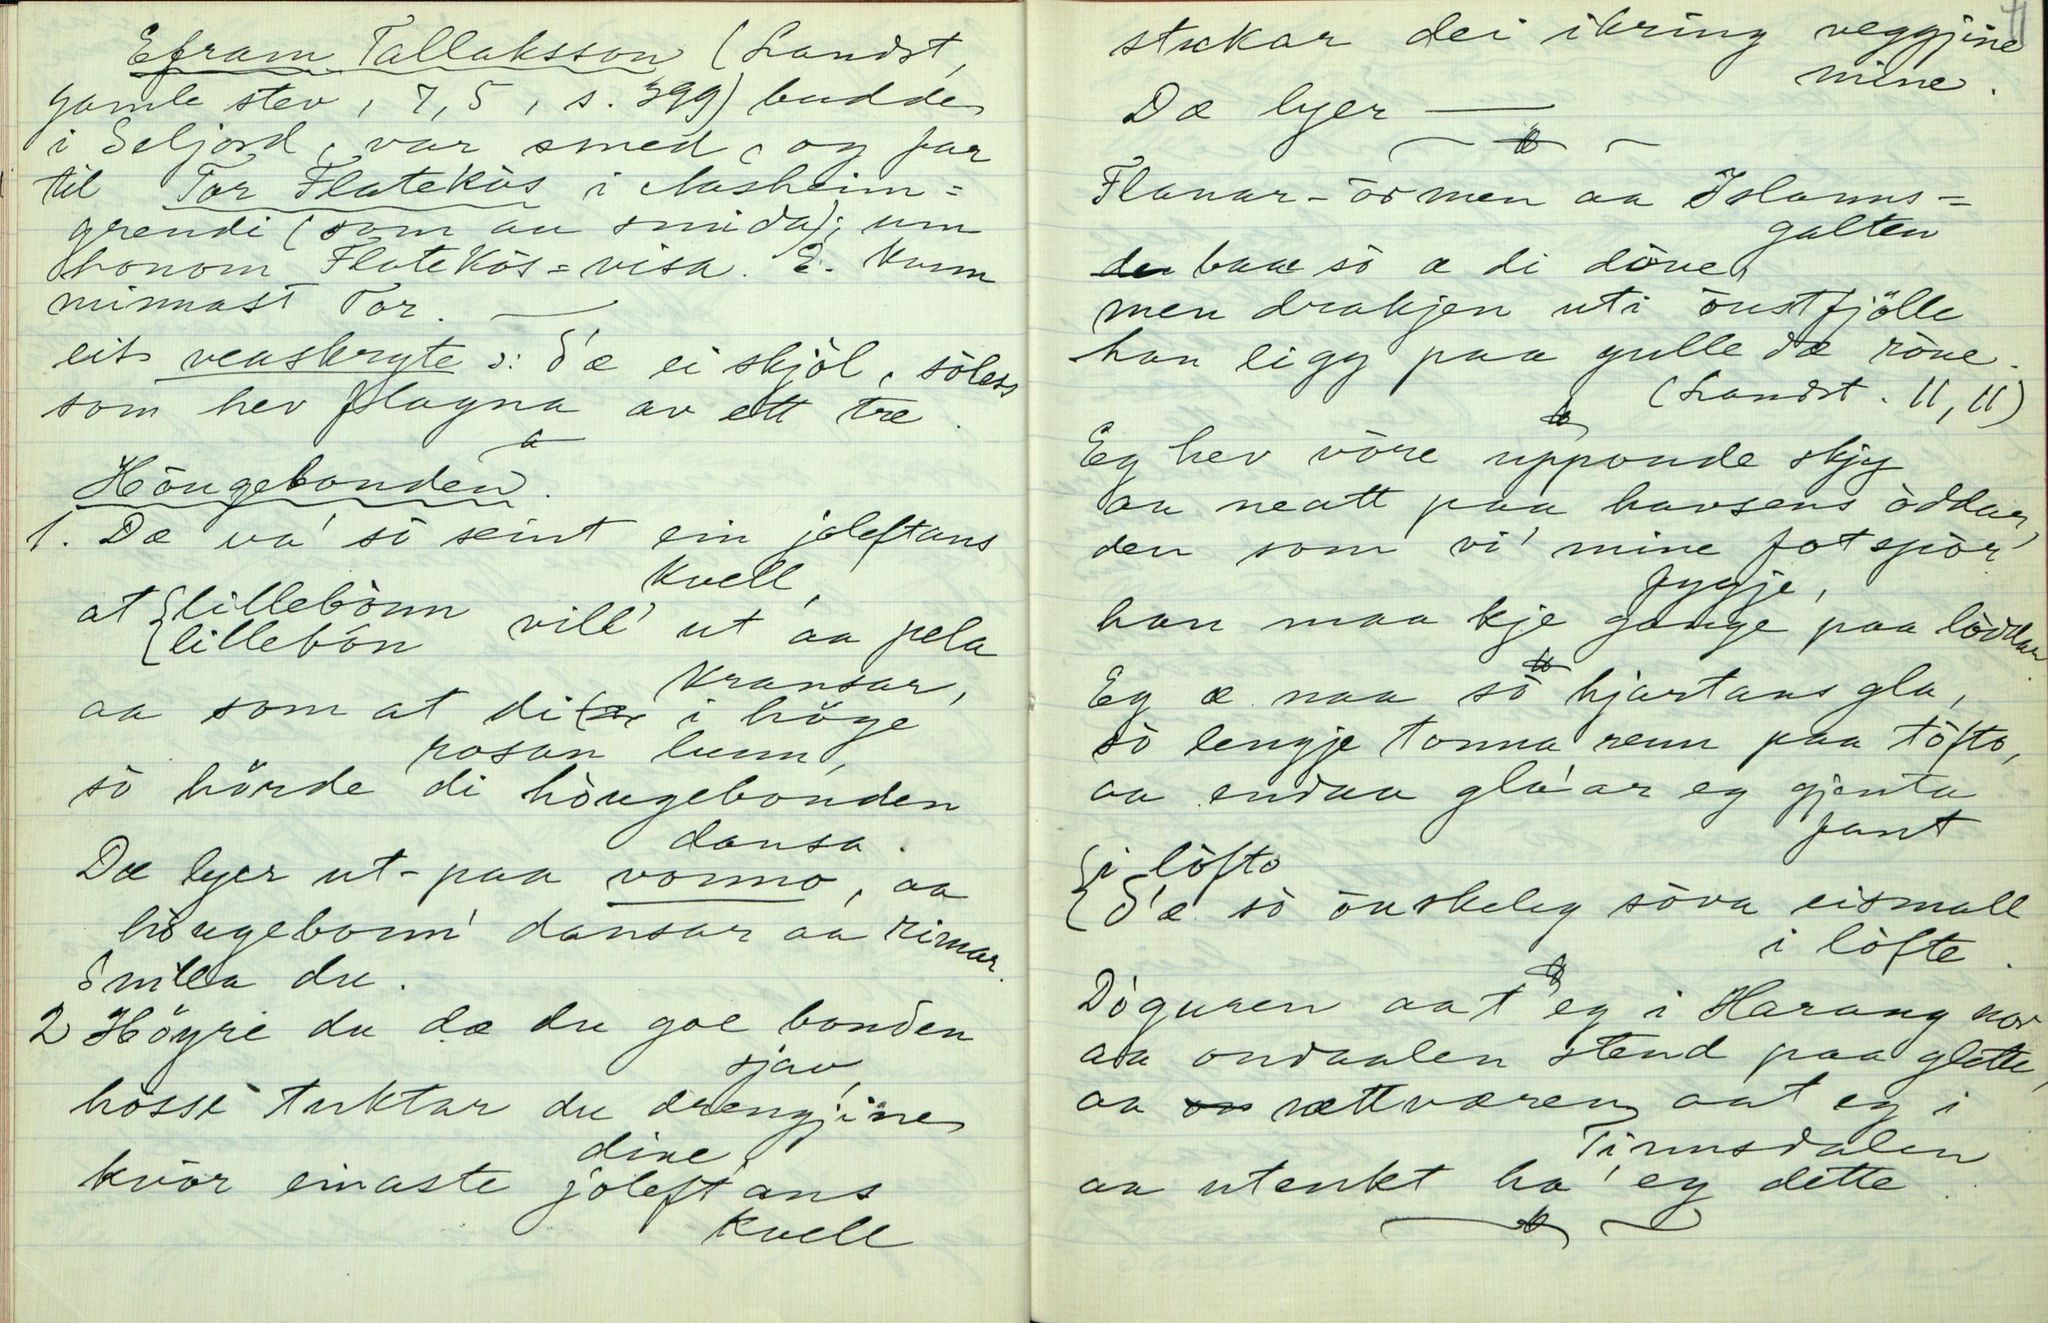 Efram Tallaksson (Landst,
gamle stev, 7,5, s. 399) budde
i Seljord, var smed, og far
til Tor Flatekås i Aasheim=
grendi (som au smida); um
honom Flatekås=visa. E. kunn
minnast Tor. —
eit veaskryte ɔ: d'æ ei skjòl, sòless
som hev flagna av ett tre.
Hòugebonden.
1. Dæ va' sò seint ein joleftans
kvell,
at { lillebònn
lillebòn vill' ut aa pela
kransar,
aa som at di i höge
rosan lunn,
sò hörde di hòugebonden
dansa.
Dæ lyer ut-paa vonno, aa
hòugebonn' dansar aa rimar.
Smilla du.
2 Höyre du dæ du goe bonden
sjav,
hossi tuktar du drengjine
dine
kvòr einaste joleftans
kvell
stukar dei ikring veggjine
mine.
Dæ lyer —
Flanar-òrmen aa Islanns=
galten
de baae sò æ di döve,
men drakjen uti òustfjölle
han ligg paa gulle dæ röue.
(Landst. 11, 11)
Eg hev vòre upponde skjy
aa neatt paa havsens òddar,
den som vi' mine fotspòr
fygje,
han maa kje gange paa lòddar.
Eg æ naa sò hjartans gla,
sò lengje tonna renn paa tòfto,
aa endaa gla'ar eg gjenta
fant
{ i lòfto
d'æ sò önskeleg sòva eismall
i lòfte.
Dòguren aat eg i Harang nor
aa ondaalen stend paa glette,
aa rettværen aat eg i
Tinnsdalen
aa utenkt ha' eg dette.